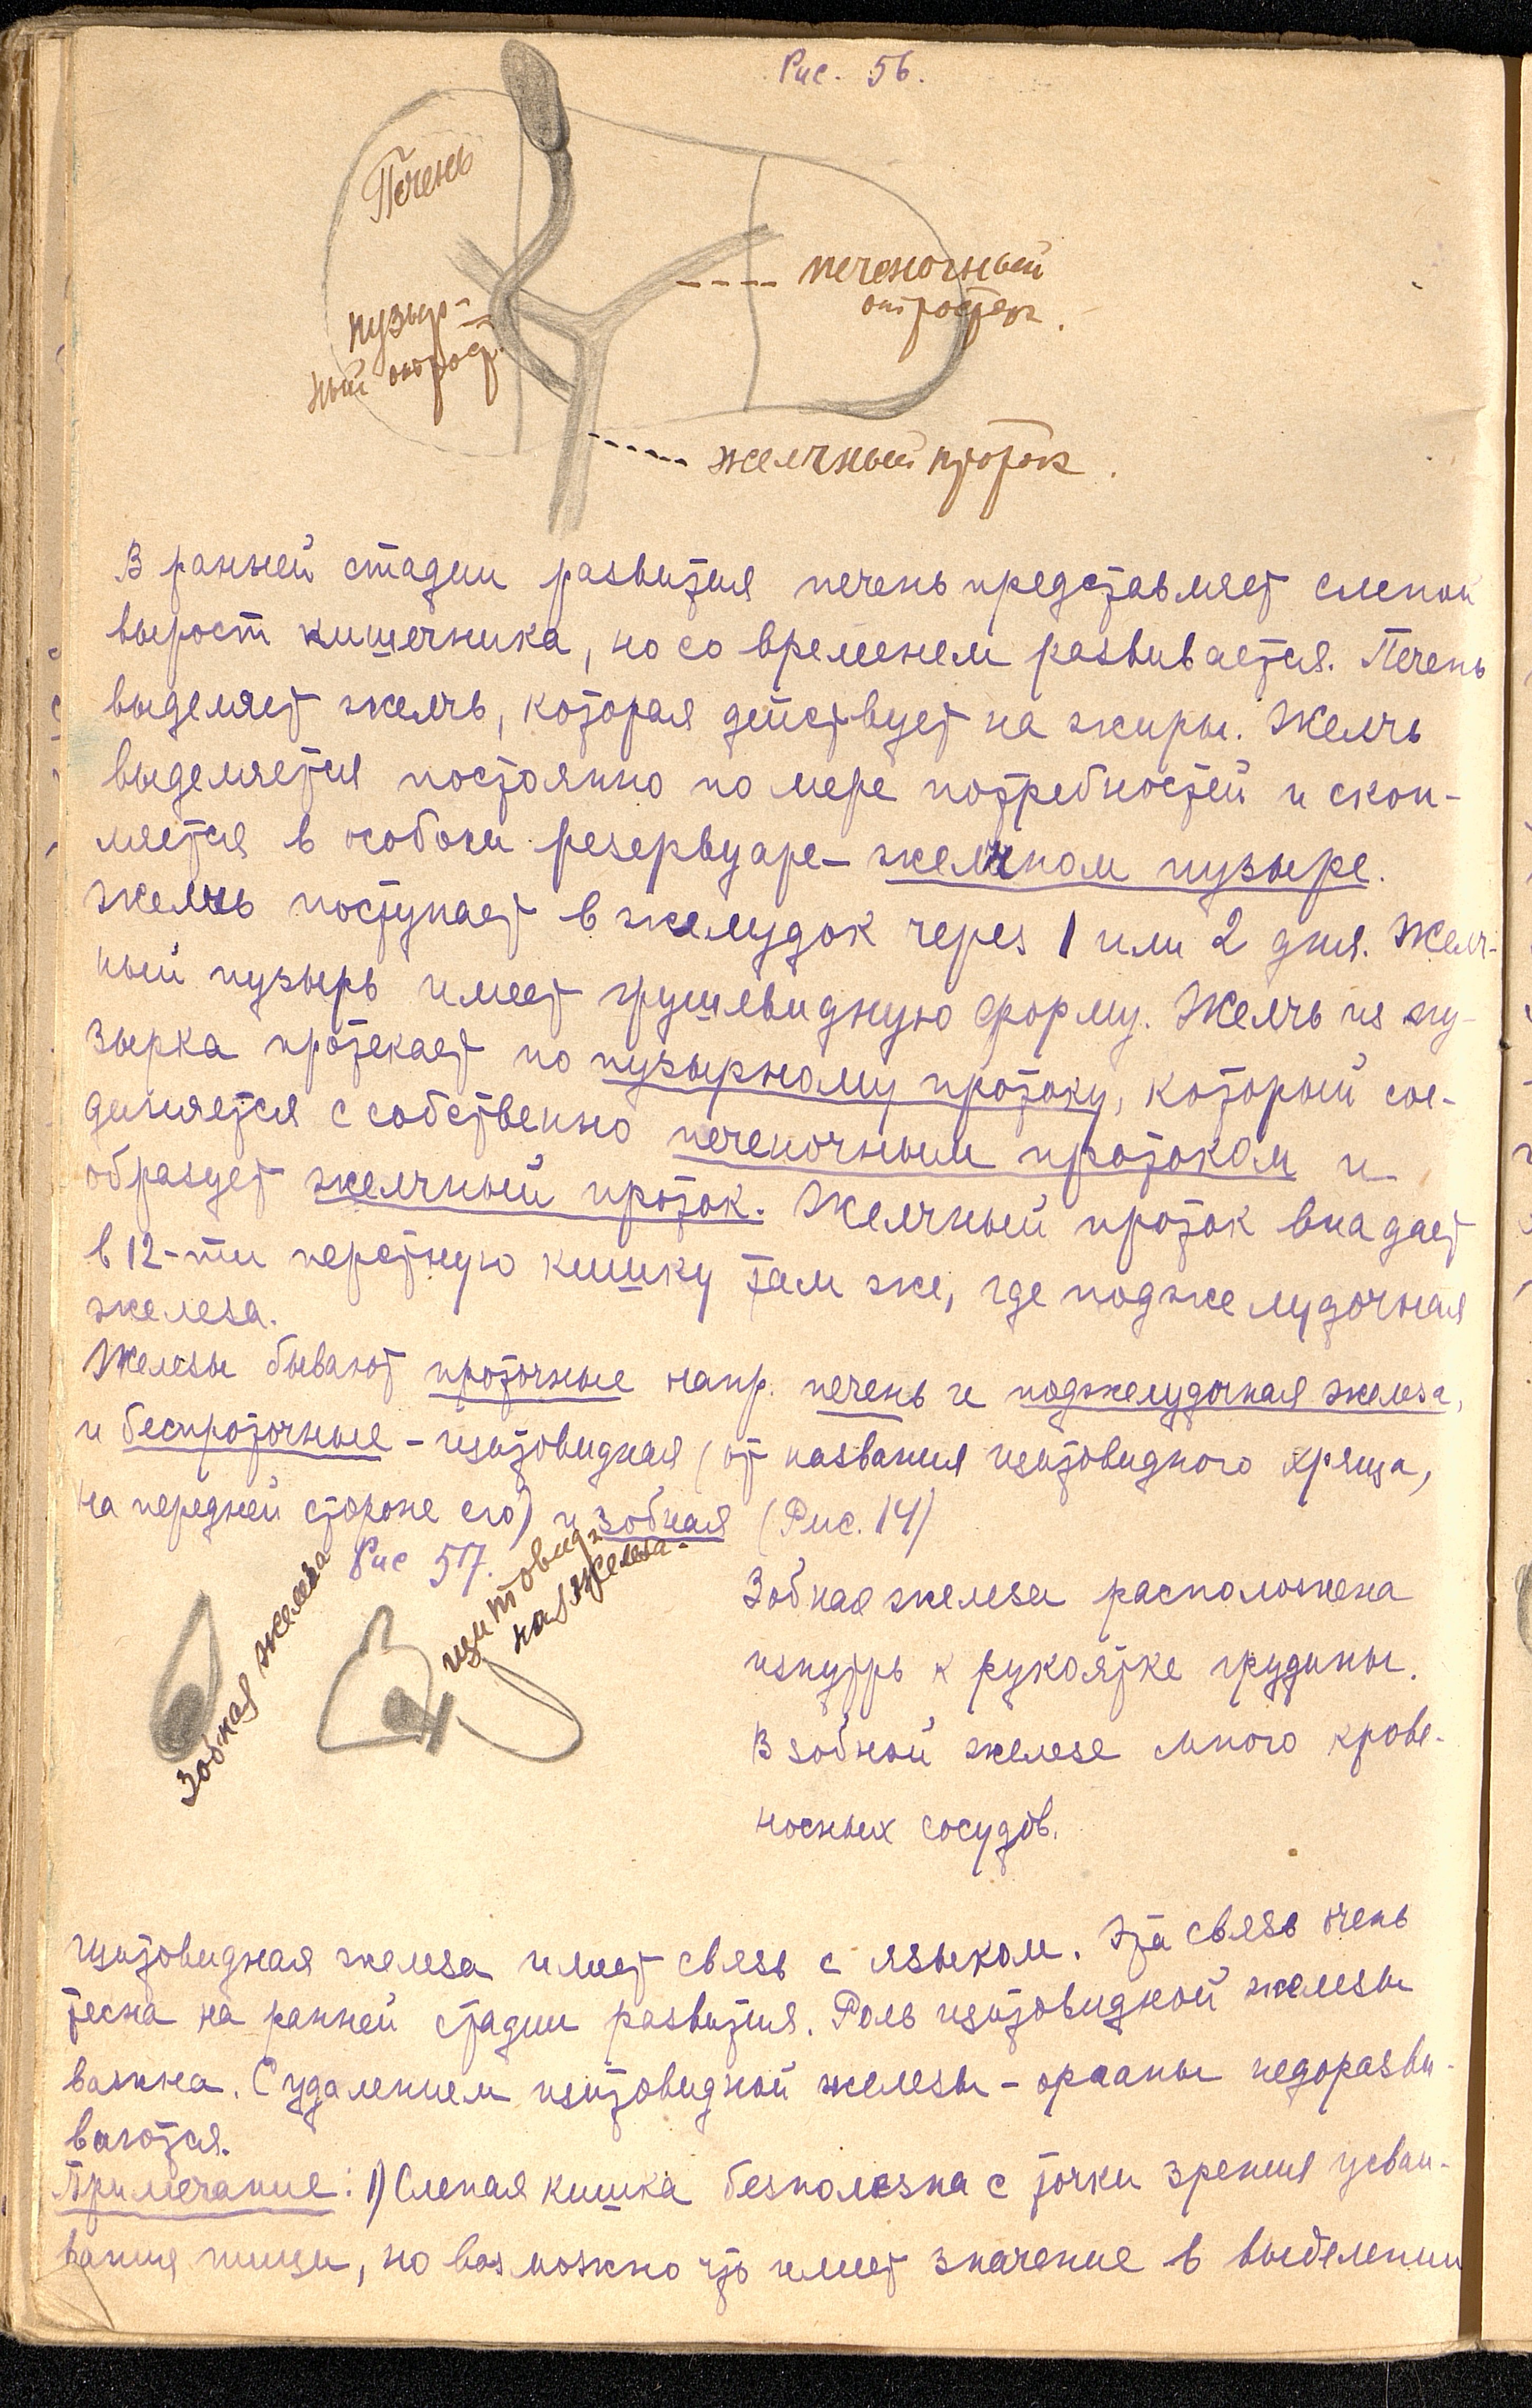 Рис. 56.
Печень
печеночный
отросток.
пузыр-
ный отрост.
желчный проток.
В ранней стадии развития печень представляет слепой
вырост кишечника, но со временем развивается. Печень
выделяет желчь, которая действует на жиры. Желчь
выделяется постоянно по мере потребностей и скоп-
ляется в особом резервуаре – желчном пузыре.
Желчь поступает в желудок через 1 или 2 дня. Желч-
ный пузырь имеет грушевидную форму. Желчь из пу-
зырка протекает по пузырному протоку, который сое-
диняется с собственно печеночным протоком и
образует желчный проток. Желчный проток впадает
в 12-ти перстную кишку там же, где поджелудочная
железа.
Железы бывают проточные напр. печень и поджелудочная железа,
и беспроточные – щитовидная (от названия щитовидного хряща,
на передней стороне его) и зобная (Рис. 14)
Рис 57.
Зобная железа
щитовид-
ная железа.
Зобная железы расположена
изнутрь к рукоятке грудины.
В зобной железе много крове-
носных сосудов.
Щитовидная железа имеет связь с языком. Эта связь очень
тесна на ранней стадии развития. Роль щитовидной железы
важна. С удалением щитовидной железы – органы недоразви-
ваются.
Примечание: 1) Слепая кишка безполезна с точки зрения усваи-
вания пищи, но возможно что имеет значение в выделении